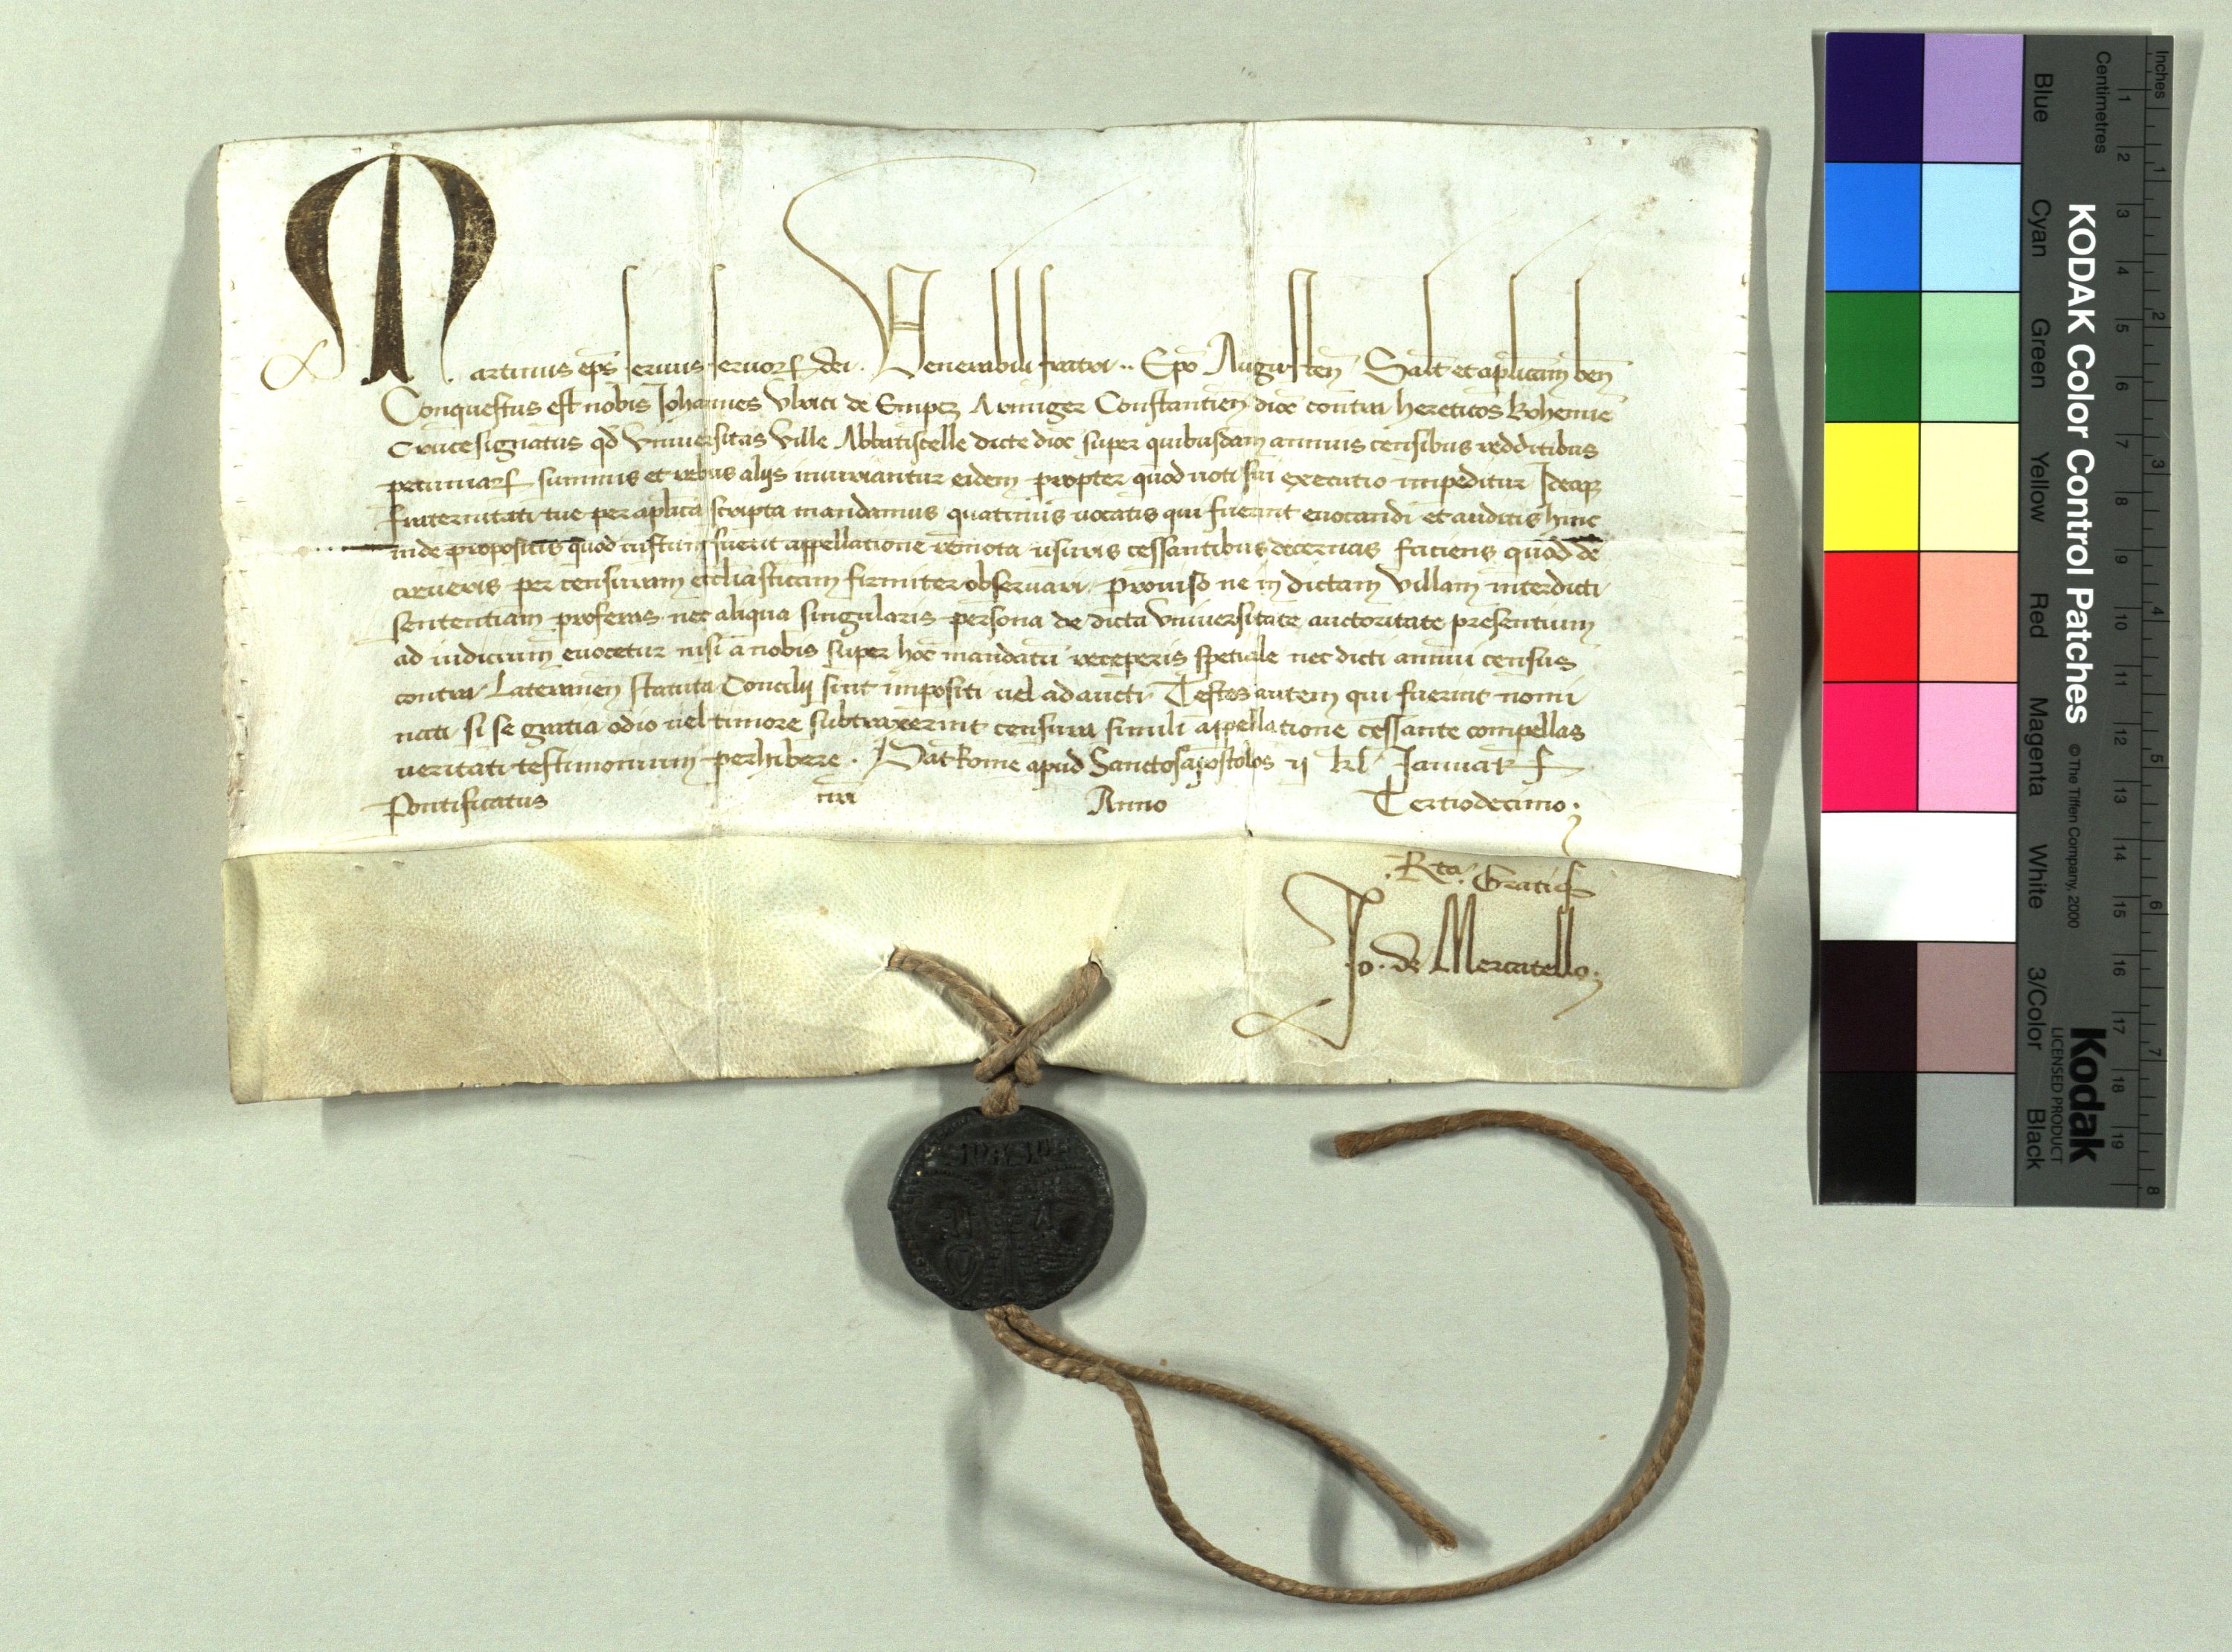 Martinus eps seruus seruor dei. Venerabili fratri .. Epo Augusten Salt et aplicam ben
Conquestus est nobis Johannes Vlrici de Emper Armiger Constantien dioc contra hereticos Bohemie
Crucesignatus qd Vniuersitas Ville Abbatiscelle dicte dioc super quibusdam annuis censibus redditibus
pecuniar summis et rebus alijs iniuriantur eidem propter quod uoti sui executio impeditur Ideoqz
fraternitati tue per aplica scripta mandamus quatinus uocatis qui fuerint euocandi et auditis hinc
inde propositis quod iustum fuerit appellatione remota usuris cessantibus decernas faciens quod de
creueris per censuram eccliasticam firmiter obseruari. Prouiso ne in dictam Villam interdicti
sententiam proferas nec aliqua singularis persona de dicta Vniuersitate auctoritate presentium
ad iudicium euocetur nisi a nobis super hoc mandatu receperis spetiale nec dicti annui census
contra Lateranen statuta Concilij sint impositi uel adaucti. Testes autem qui fuerint nomi
nati si se gratia odio uel timore subtraxerint censura simili appellatione cessante compellas
ueritati testimonium perhibere. Dat Rome apud Sanctosapostolos ij kl Januar
Pontificatus nri Anno Tertiodecimo.
.Rta. Gratis
Jo. de Mercatello.
Inches
Centimetres
1 2 3 4 5 6 7 8
1 2 3 4 5 6 7 8 9 10 11 12 13 14 15 16 17 18 19
KODAK Color Control Patches © The Tiffen Company, 2000 Kodak
LICENSED PRODUCT
Blue Cyan Green Yellow Red Magenta White 3/Color Black